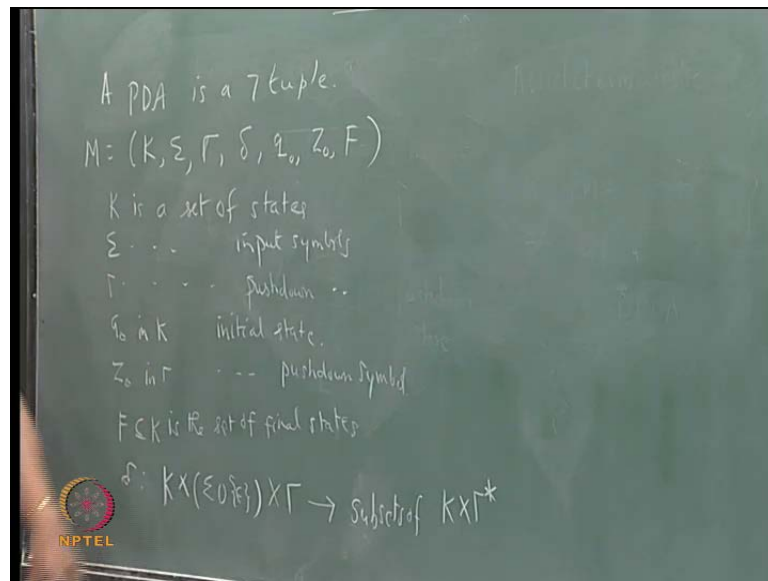 A PDA is a 7 tuple.
M = (K, Σ, Γ, δ, q₀, Z₀, F)
K is a set of states
Σ · · · input symbols
Γ · · · · pushdown ··
q₀ in K initial state.
Z₀ in Γ ··· pushdown symbol
F ⊆ K is the set of final states
δ: K X (Σ ∪ {ε}) X Γ → subsets of K X Γ*
NPTEL